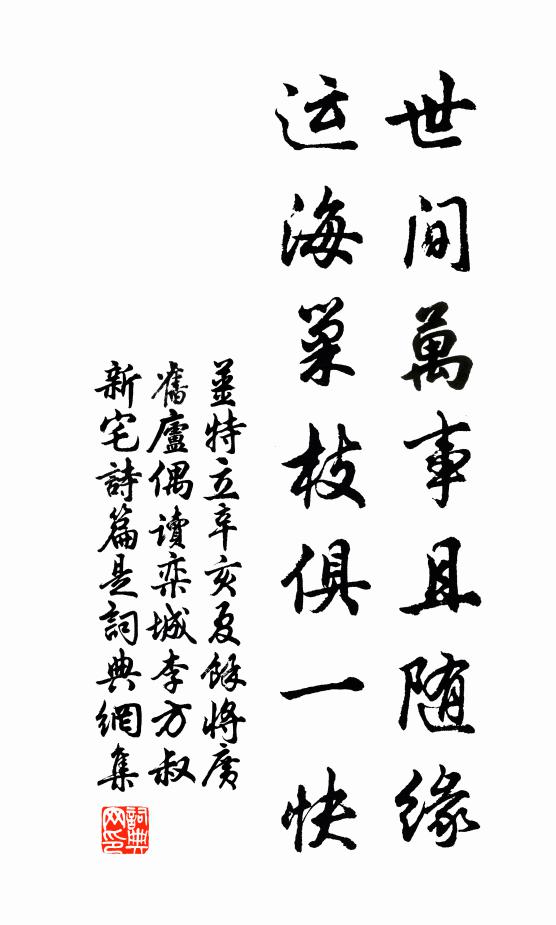 世间萬事且随緣
运海巢枝俱一快
姜特立辛亥夏餘將廣
舊廬偶读栾城李方叔
新宅詩篇是詞典網集
詞典网印